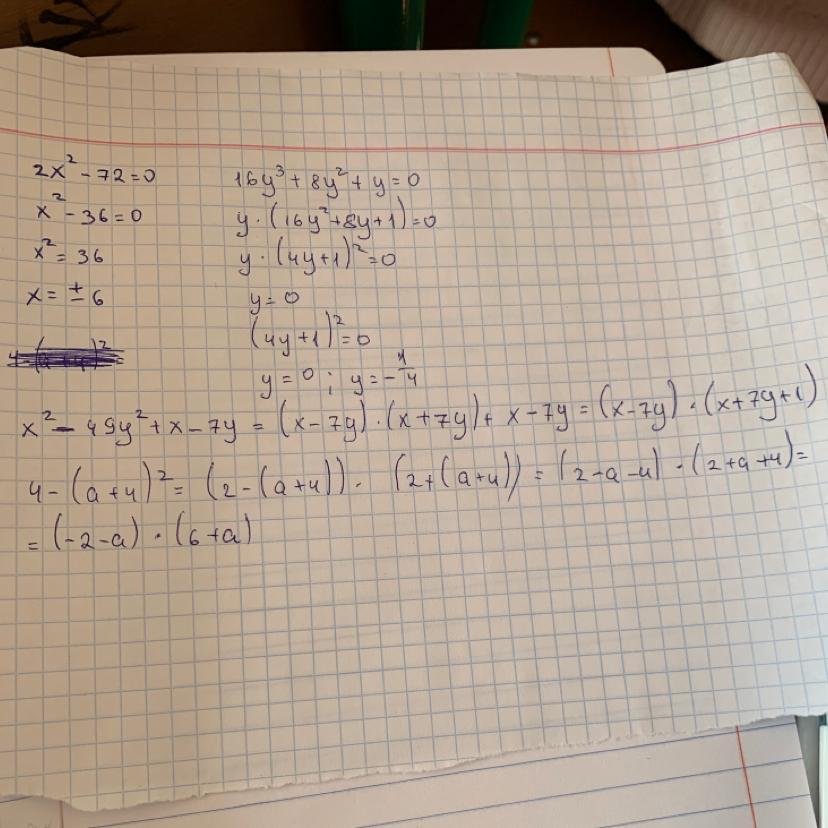 2x² - 72 = 0
x² - 36 = 0
x² = 36
x = ± 6
16y³ + 8y² + y = 0
y · (16y² + 8y + 1) = 0
y · (4y + 1)² = 0
y = 0
(4y + 1)² = 0
y = 0 ; y = -1/4
x² - 49y² + x - 7y = (x - 7y) · (x + 7y) + x - 7y = (x - 7y) · (x + 7y + 1)
4 - (a + 4)² = (2 - (a + 4)) · (2 + (a + 4)) = (2 - a - 4) · (2 + a + 4) =
= (-2 - a) · (6 + a)